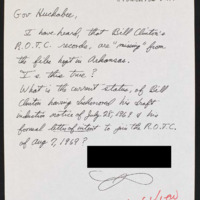 Gov. Huckabee,
I have heard, that Bill Clinton's
R.O.T.C. records, are "missing" from
the files kept in Arkansas.
Is this true?
What is the current status, of Bill
Clinton having dishonored his draft
induction notice of July 28, 1969 & his
formal letter of intent to join the R.O.T.C.
of Aug 7, 1969?